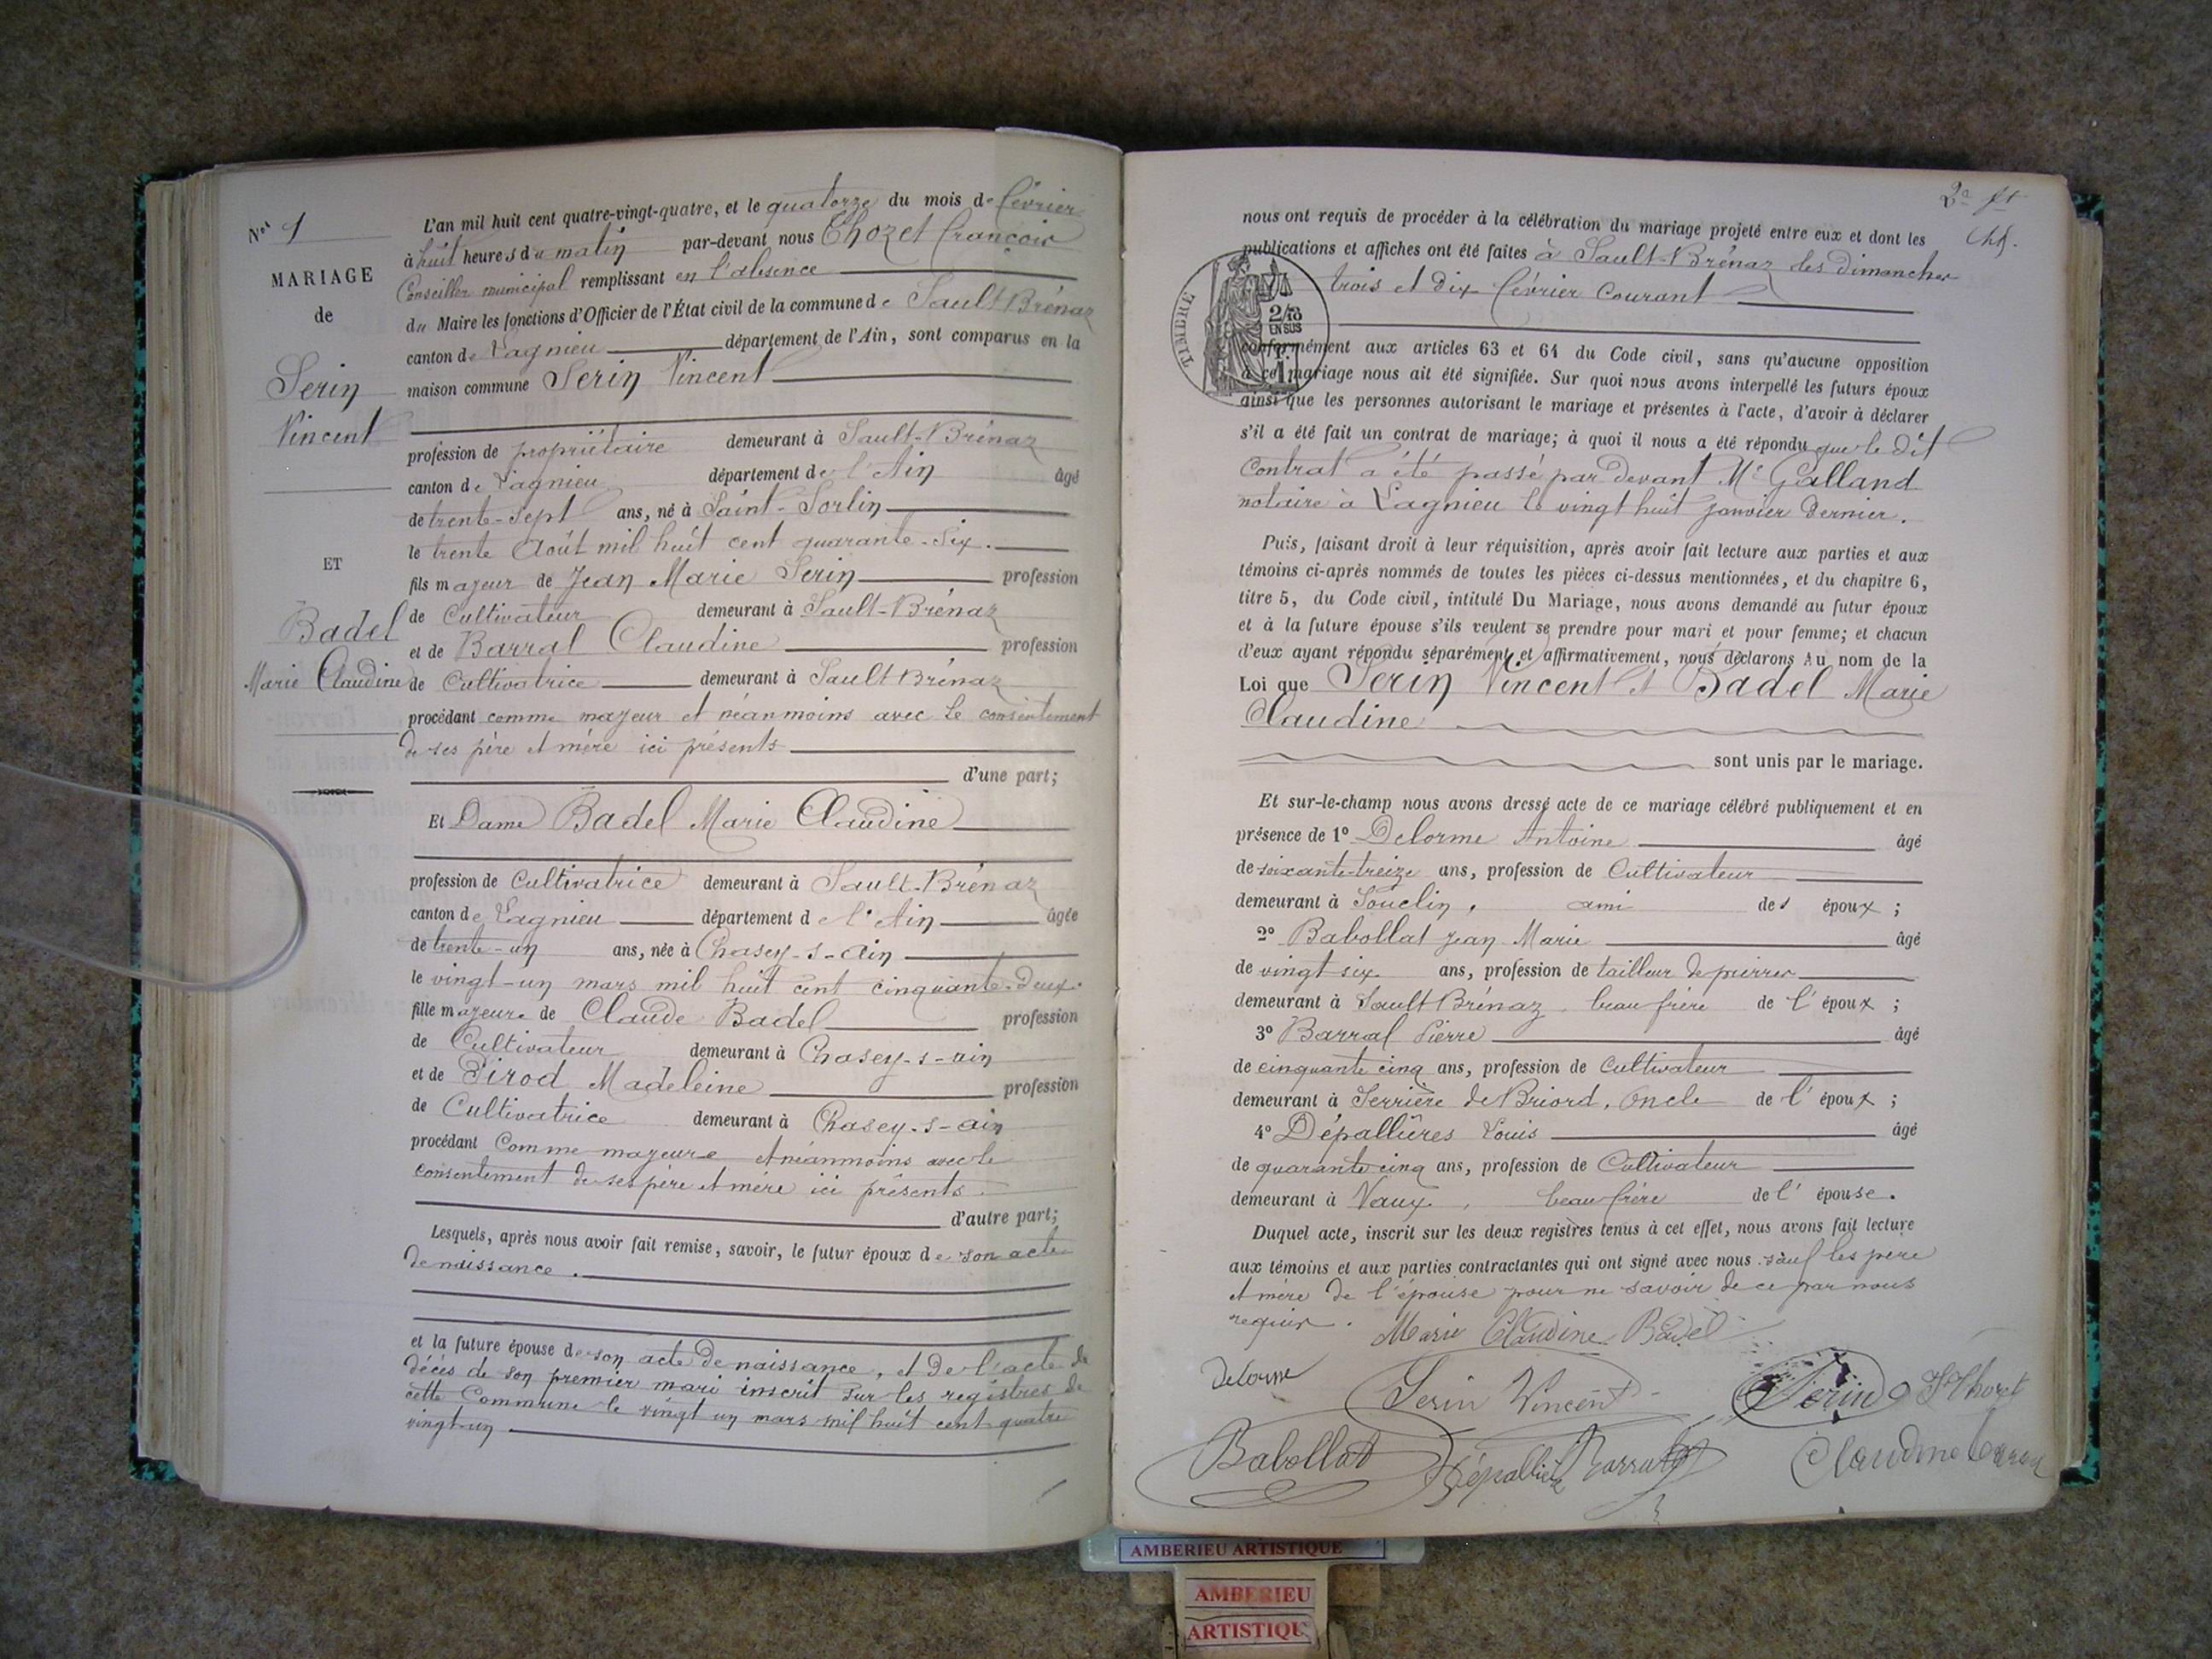 Nos 1
MARIAGE
de
Serin
Vincent
ET
Badel
Marie Claudine
L'an mil huit cent quatre-vingt-quatre, et le quatorze du mois de février
à huit heures du matin par-devant nous Thozet François
Conseiller municipal remplissant en l'absence
du Maire les fonctions d'Officier de l'État civil de la commune de Sault-Brénaz
canton de Lagnieu département de l'Ain, sont comparus en la
maison commune Serin Vincent
profession de propriétaire demeurant à Sault-Brénaz
canton de Lagnieu département de l'Ain âgé
de trente-sept ans, né à Saint-Sorlin
le trente Août mil huit cent quarante-six.
fils majeur de Jean Marie Serin profession
de Cultivateur demeurant à Sault-Brénaz
et de Barral Claudine profession
de Cultivatrice demeurant à Sault Brénaz
procédant comme majeur et néanmoins avec le consentement
de ses père et mère ici présents
d'une part;
Et Dame Badel Marie Claudine
profession de Cultivatrice demeurant à Sault-Brénaz
canton de Lagnieu département de l'Ain âgée
de trente-un ans, née à Chasey-s-Ain
le vingt-un mars mil huit cent cinquante-deux.
fille majeure de Claude Badel profession
de Cultivateur demeurant à Chasey-s-ain
et de Pirod Madeleine profession
de Cultivatrice demeurant à Chasey-s-ain
procédant Comme majeure et néanmoins avec le
consentement de ses père et mère ici présents.
d'autre part;
Lesquels, après nous avoir fait remise, savoir, le futur époux de son acte
de naissance.
et la future épouse de son acte de naissance, et de l'acte de
décès de son premier mari inscrit sur les registres de
cette Commune le vingt un mars mil huit cent quatre
vingt-un
nous ont requis de procéder à la célébration du mariage projeté entre eux et dont les
publications et affiches ont été faites à Sault-Brénaz les dimanches
trois et dix février courant
TIMBRE
2/10
EN SUS
conformément aux articles 63 et 64 du Code civil, sans qu'aucune opposition
à ce mariage nous ait été signifiée. Sur quoi nous avons interpellé les futurs époux
ainsi que les personnes autorisant le mariage et présentes à l'acte, d'avoir à déclarer
s'il a été fait un contrat de mariage; à quoi il nous a été répondu que le dit
Contrat a été passé par devant Me Galland
notaire à Lagnieu le vingt huit janvier dernier.
Puis, faisant droit à leur réquisition, après avoir fait lecture aux parties et aux
témoins ci-après nommés de toutes les pièces ci-dessus mentionnées, et du chapitre 6,
titre 5, du Code civil, intitulé Du Mariage, nous avons demandé au futur époux
et à la future épouse s'ils veulent se prendre pour mari et pour femme; et chacun
d'eux ayant répondu séparément et affirmativement, nous déclarons Au nom de la
Loi que Serin Vincent et Badel Marie
Claudine
sont unis par le mariage.
Et sur-le-champ nous avons dressé acte de ce mariage célébré publiquement et en
présence de 1º Delorme Antoine âgé
de soixante-treize ans, profession de Cultivateur
demeurant à Souclin, ami des époux;
2º Babollat Jean Marie âgé
de vingt six ans, profession de tailleur de pierres
demeurant à Sault Brénaz, beau frère de l'époux;
3º Barral Pierre âgé
de cinquante cinq ans, profession de Cultivateur
demeurant à Serrière de Briord, Oncle de l'époux;
4º Dépallières Louis âgé
de quarante cinq ans, profession de Cultivateur
demeurant à Vaux, beau frère de l'épouse.
Duquel acte, inscrit sur les deux registres tenus à cet effet, nous avons fait lecture
aux témoins et aux parties contractantes qui ont signé avec nous sauf les père
et mère de l'épouse pour ne savoir de ce par nous
requis.
Marie Claudine Badel
Delorme
Serin Vincent
Serin
Thozet
Babollat
Barral
Claudine
AMBERIEU ARTISTIQUE
AMBERIEU
ARTISTIQU